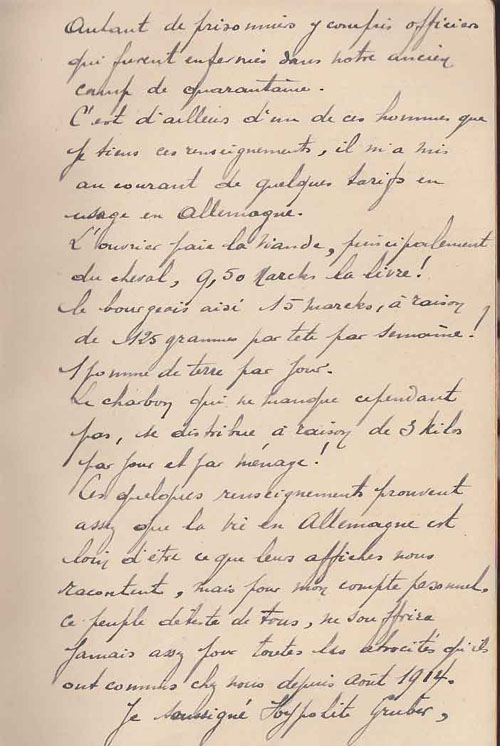 Autant de prisonniers y compris officiers
qui furent enfermés dans notre ancien
camp de quarantaine.
C'est d'ailleurs d'un de ces hommes que
je tiens ces renseignements, il m'a mis
au courant de quelques tarifs en
usage en Allemagne.
L'ouvrier paie la viande, principalement
du cheval, 9,50 Marcks la livre!
le bourgeois aisé 15 marcks, à raison
de 125 grammes par tête par semaine!
1 pomme de terre par jour.
Le charbon qui ne manque cependant
pas, se distribue à raison de 3 kilos
par jour et par ménage!
Ces quelques renseignements prouvent
assez que la vie en Allemagne est
loin d'être ce que leurs affiches nous
racontent, mais pour mon compte personnel,
ce peuple détesté de tous, ne souffrira
jamais assez pour toutes les atrocités qu'ils
ont commis chez nous depuis Août 1914.
Je soussigné Hyppolite Gruber,